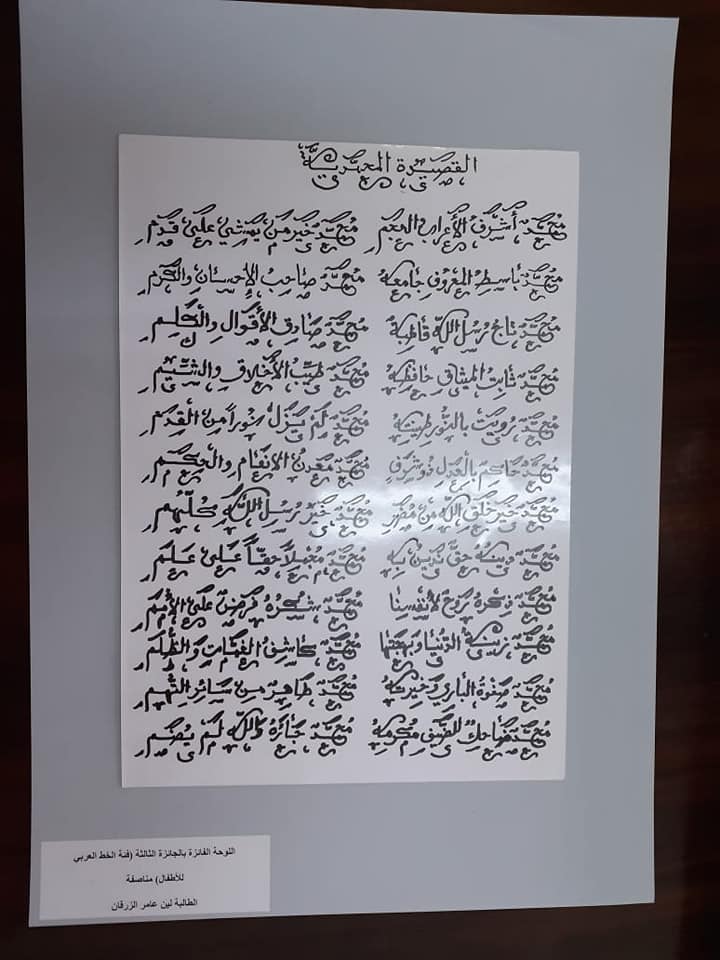 القصيدة المحمدية
محمد أشرف الأعراب والعجم محمد خير من يمشي على قدم
محمد باسط المعروف جامعه محمد صاحب الإحسان والكرم
محمد تاج رسل الله قاطبة محمد صادق الأقوال والكلم
محمد ثابت الميثاق حافظه محمد طيب الأخلاق والشيم
محمد رويت بالنور طينته محمد لم يزل نوراً من القدم
محمد حاكم بالعدل ذو شرف محمد معدن الإنعام والحكم
محمد خير خلق الله من مضر محمد خير رسل الله كلهم
محمد دينه حق ندين به محمد مجملاً حقاً على علم
محمد ذكره روح لأنفسنا محمد شكره فرض على الأمم
محمد زينة الدنيا وبهجتها محمد كاشف الغمات والظلم
محمد صفوة الباري وخيرته محمد طاهر من سائر التهم
محمد ضاحك للضيف مكرمه محمد جاره والله لم يضم
اللوحة الفائزة بالجائزة الثالثة (فئة الخط العربي
للأطفال) مناصفة
الطالبة لين عامر الزرقان